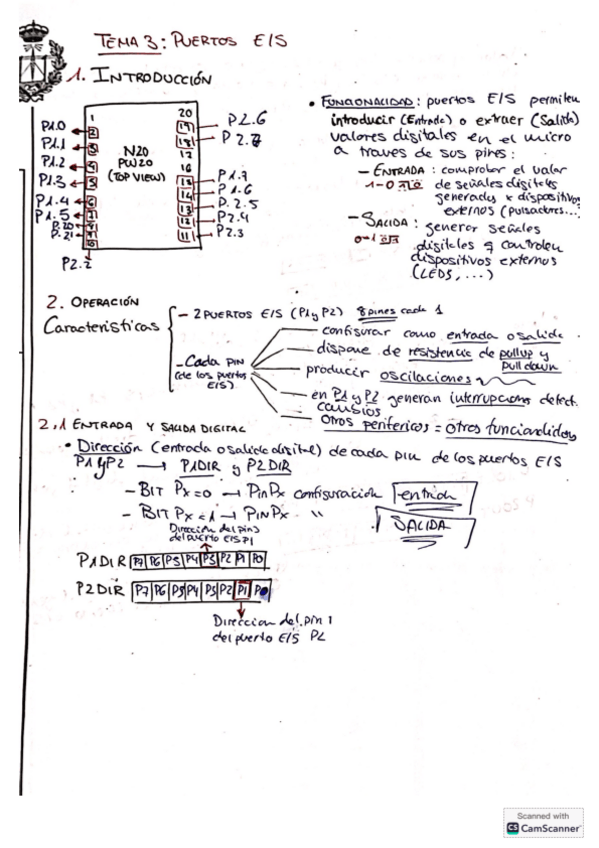 TEMA 3: PUERTOS E/S
1. INTRODUCCIÓN
P1.0
P1.1
P1.2
P1.3
P1.4
P1.5
P2.0
P2.1
P2.2
1
2
3
4
5
6
7
8
9
10
N20
PW20
(TOP VIEW)
20
19
18
17
16
15
14
13
12
11
P2.6
P2.7
P1.7
P1.6
P2.5
P2.4
P2.3
• FUNCIONALIDAD: puertos E/S permiten
introducir (Entrada) o extraer (Salida)
valores digitales en el micro
a traves de sus pines:
- ENTRADA: comprobar el valor
de señales digitales
generadas x dispositivos
externos (pulsadores...
- SALIDA: generar señales
digitales q controlen
dispositivos externos
(LEDS, ...)
2. OPERACIÓN
Caracteristicas
- 2 PUERTOS E/S (P1 y P2) 8 pines cada 1
- Cada PIN
(de los puertos
E/S)
configurar como entrada o salida
dispone de resistencia de pullup y
pull down
producir oscilaciones
en P1 y P2 generan interrupciones detect.
cambios
Otros perifericos = otras funcionalidades
2.1 ENTRADA Y SALIDA DIGITAL
• Dirección (entrada o salida digital) de cada pin de los puertos E/S
P1 y P2 → P1DIR y P2DIR
- BIT Px=0 → PinPx configuración entrada
- BIT Px=1 → PINPx " SALIDA
Dirección del pin3
del puerto E/S P1
P1DIR P7 P6 P5 P4 P3 P2 P1 P0
P2DIR P7 P6 P5 P4 P3 P2 P1 P0
Direccion del pin 1
del puerto E/S P2
Scanned with
CS CamScanner